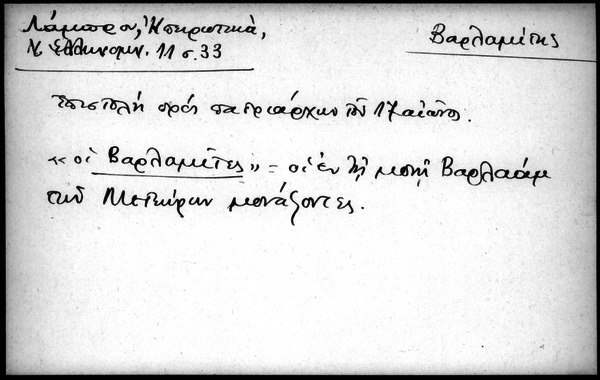 Λάμπρου, Ἠπειρωτικά,
Ν. Ἑλληνομν. 11 σ. 33
Βαρλαμίτης
Ἐπιστολὴ πρὸς πατριάρχην τοῦ 17 αἰῶνος.
«οἱ Βαρλαμῖτες» = οἱ ἐν τῇ μονῇ Βαρλαὰμ
τῶν Μετεώρων μονάζοντες.